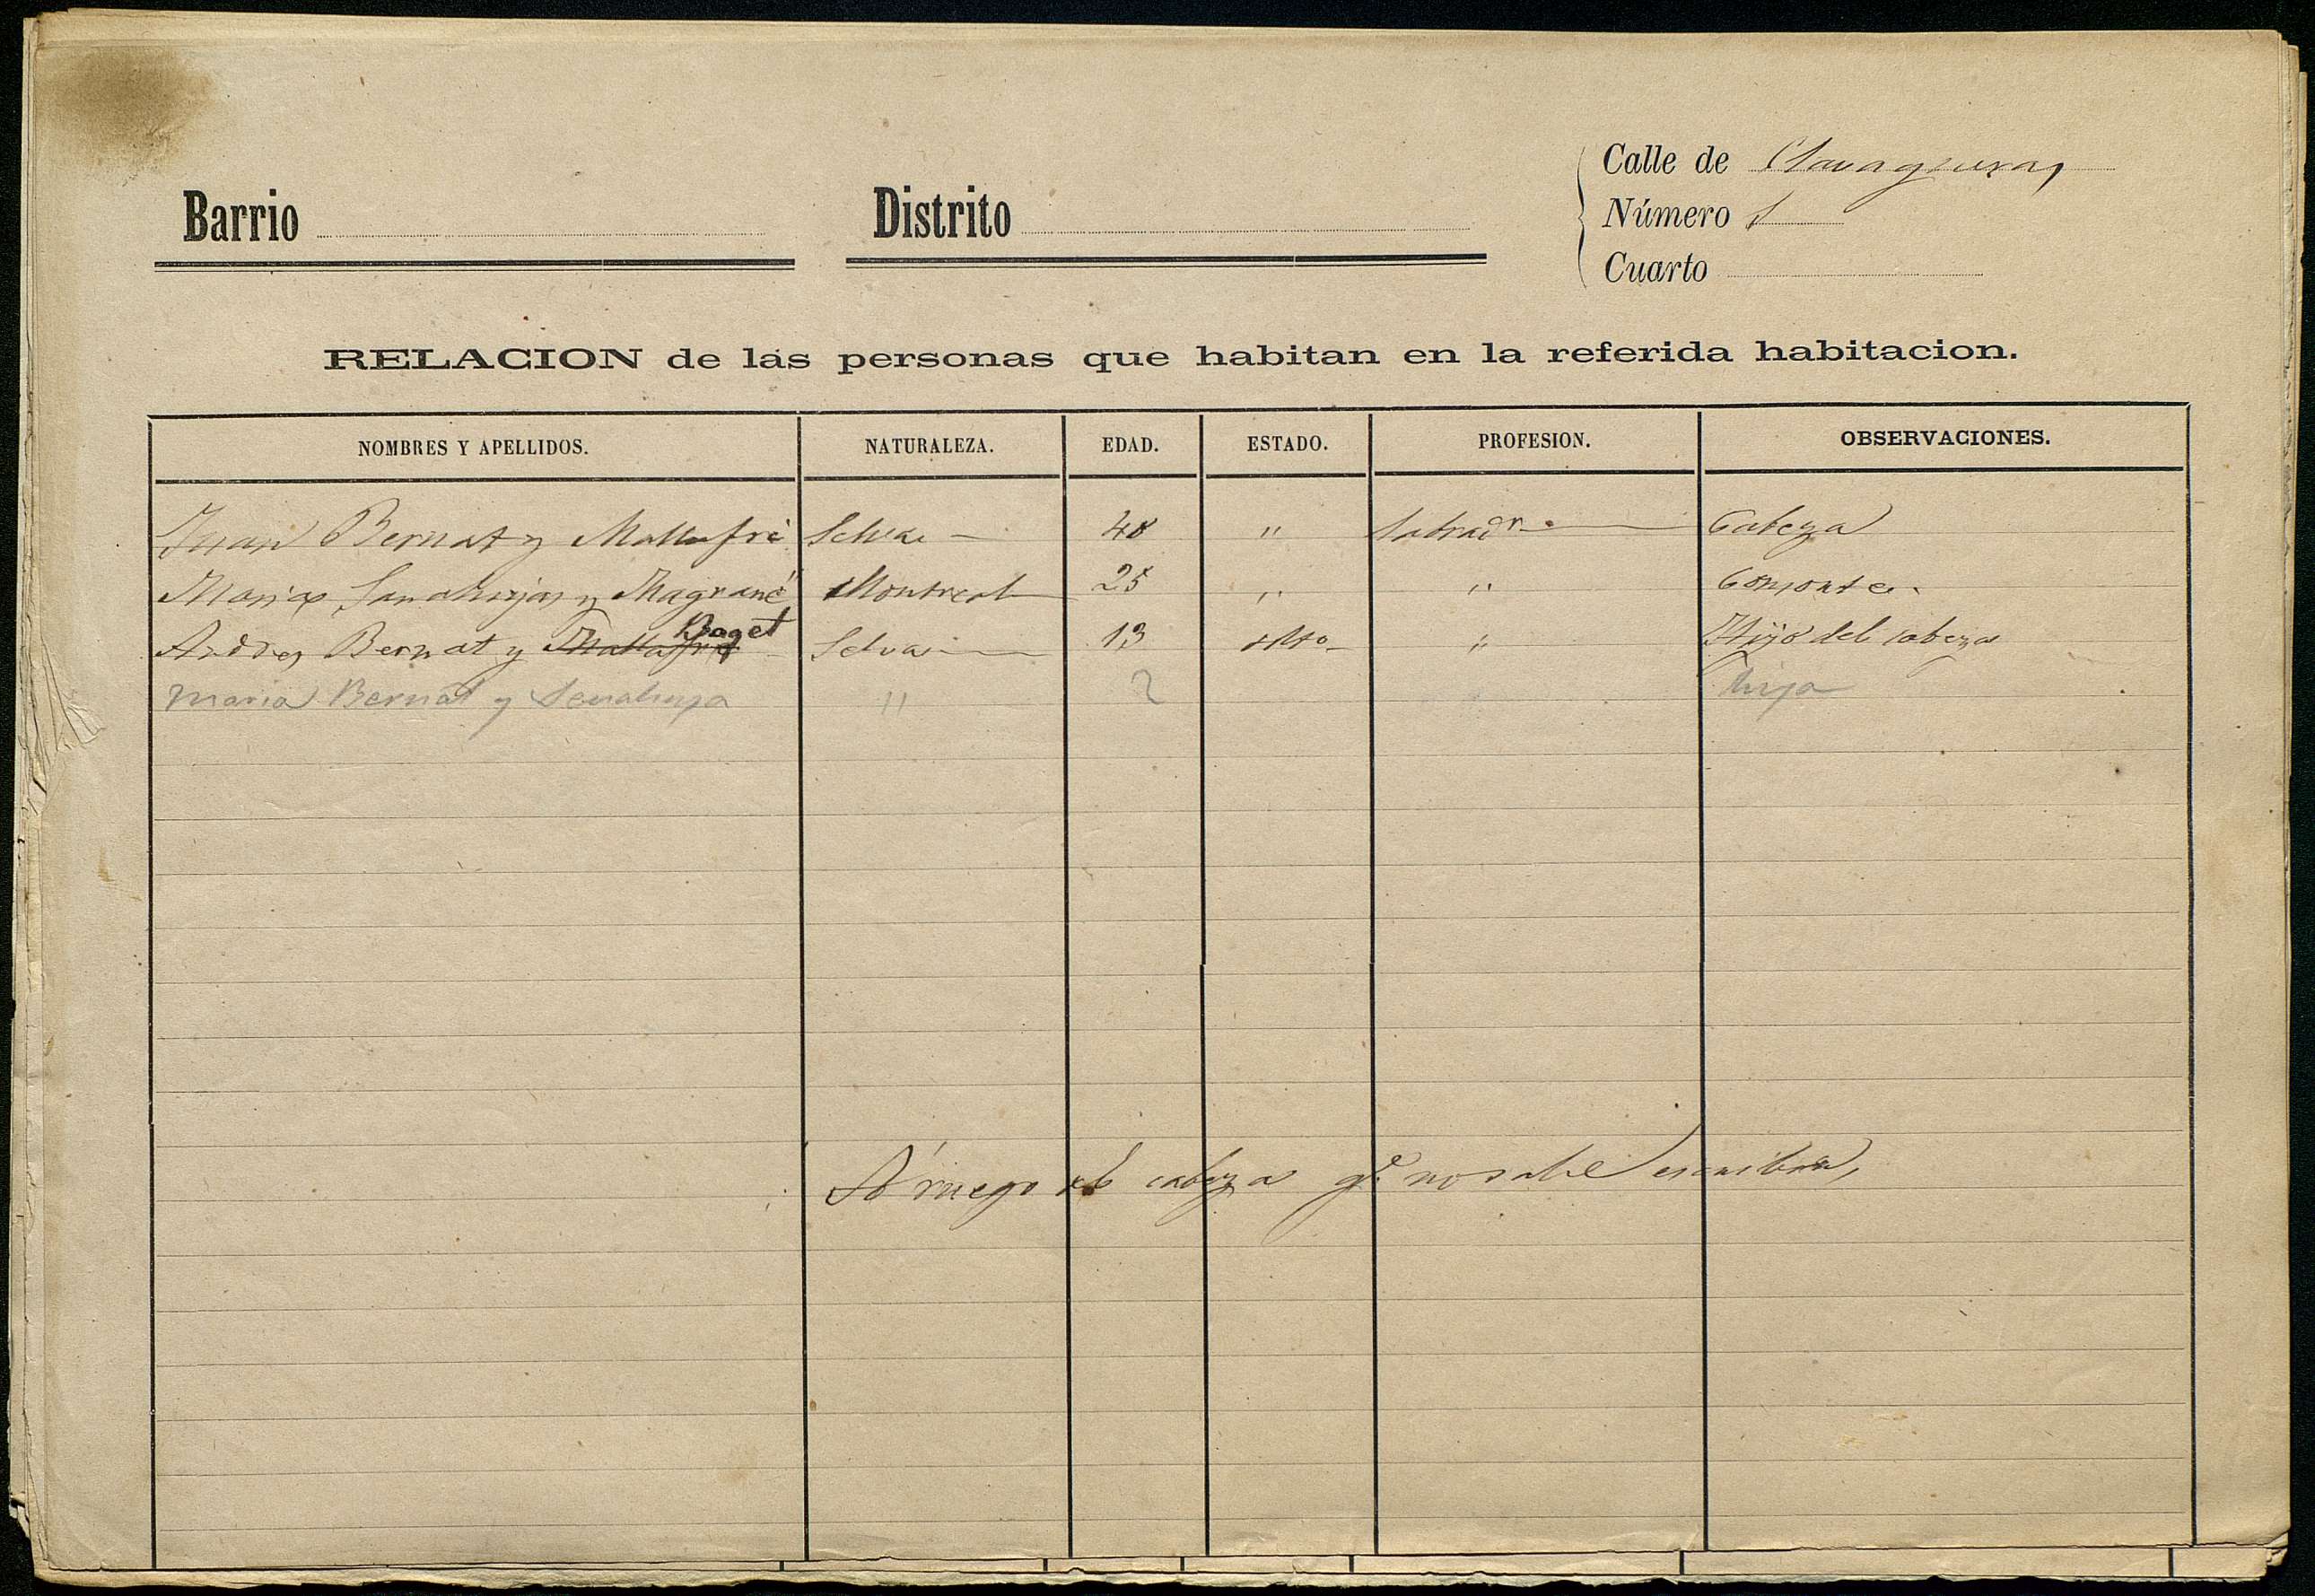 Calle de Clavagueras
Barrio Distrito Número 1
Cuarto
RELACION de las personas que habitan en la referida habitacion.
NOMBRES Y APELLIDOS. NATURALEZA. EDAD. ESTADO. PROFESION. OBSERVACIONES.
Juan Bernat y Mallafré Selva 48 " Labrador Cabeza
Maria y Magrané Montreal 25 " " Consorte
Baget
Andres Bernat y Mallafré Selva 13 solto " Hijo del cabeza
Maria Bernat y " 2 " hija
A ruego del cabeza qe. no sabe escribir,